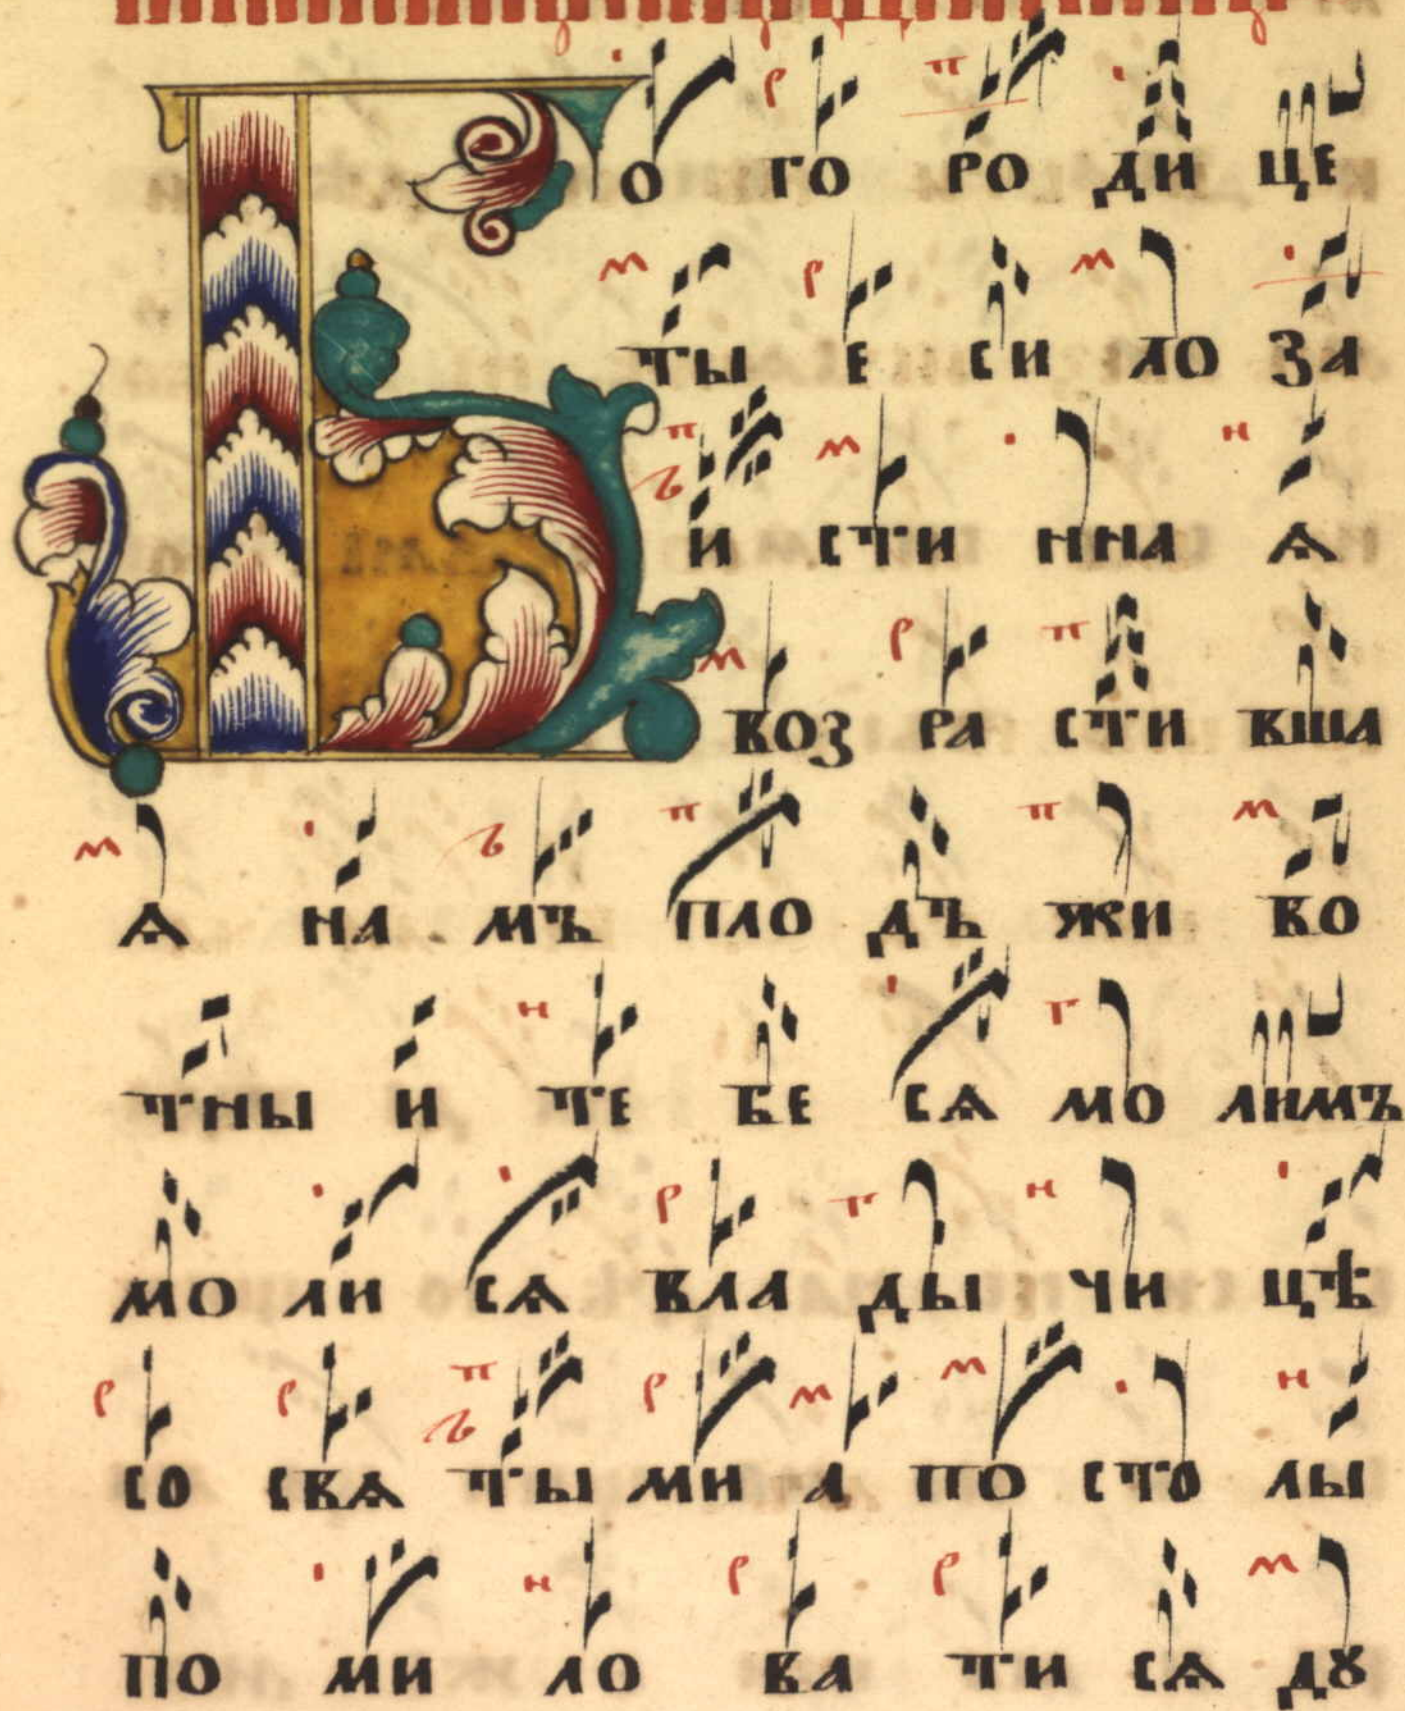 Б о го ро ди це
ты е си ло за
и сти нна ѧ
воз ра сти вша
ѧ на мъ пло дъ жи во
тны и те бе сѧ мо лимъ
мо ли сѧ вла ды чи цѣ
со свѧ ты ми а по сто лы
по ми ло ва ти сѧ дꙋ